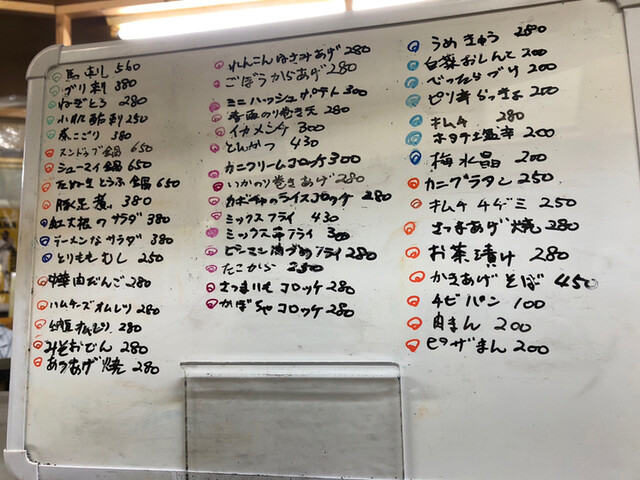 馬刺し 560
ブリ刺 380
ねぎとろ 280
小肌酢刺 250
煮こごり 380
スンドゥブ鍋 650
シューマイ鍋 650
とうふ鍋 650
豚足煮 380
紅大根のサラダ 380
ラーメンなサラダ 380
とりももむし 250
中華肉だんご 280
ハムチーズオムレツ 280
280
みそおでん 280
あつあげ焼 280
れんこんはさみあげ 280
ごぼうからあげ 280
ミニハッシュポテト 300
のり巻き天 280
イカメンチ 300
とんかつ 430
カニクリームコロッケ 300
いかのり巻きあげ 280
カボチャのライスコロッケ 280
ミックスフライ 430
ミックス串フライ 300
ピーマン肉づめフライ 280
たこから 250
さつまいもコロッケ 280
かぼちゃコロッケ 280
うめきゅう 280
白菜おしんこ 200
べったらづけ 200
ピリ辛らっきょ 200
キムチ 280
ホタテ塩辛 200
梅水晶 200
カニグラタン 250
キムチチヂミ 250
さつまあげ焼 280
お茶漬け 280
かきあげそば 450
チビパン 100
肉まん 200
ピザまん 200